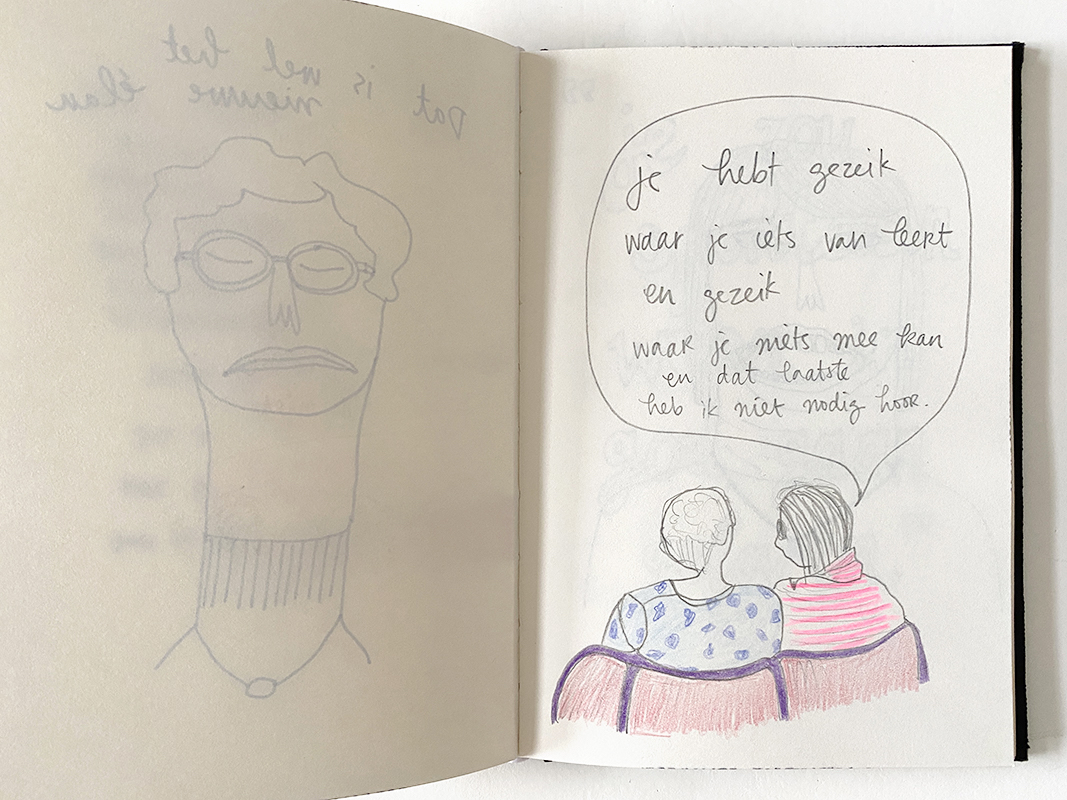 Dat is wel het
nieuwe élan
je hebt gezeik
waar je iets van leert
en gezeik
waar je niets mee kan
en dat laatste
heb ik niet nodig hoor.